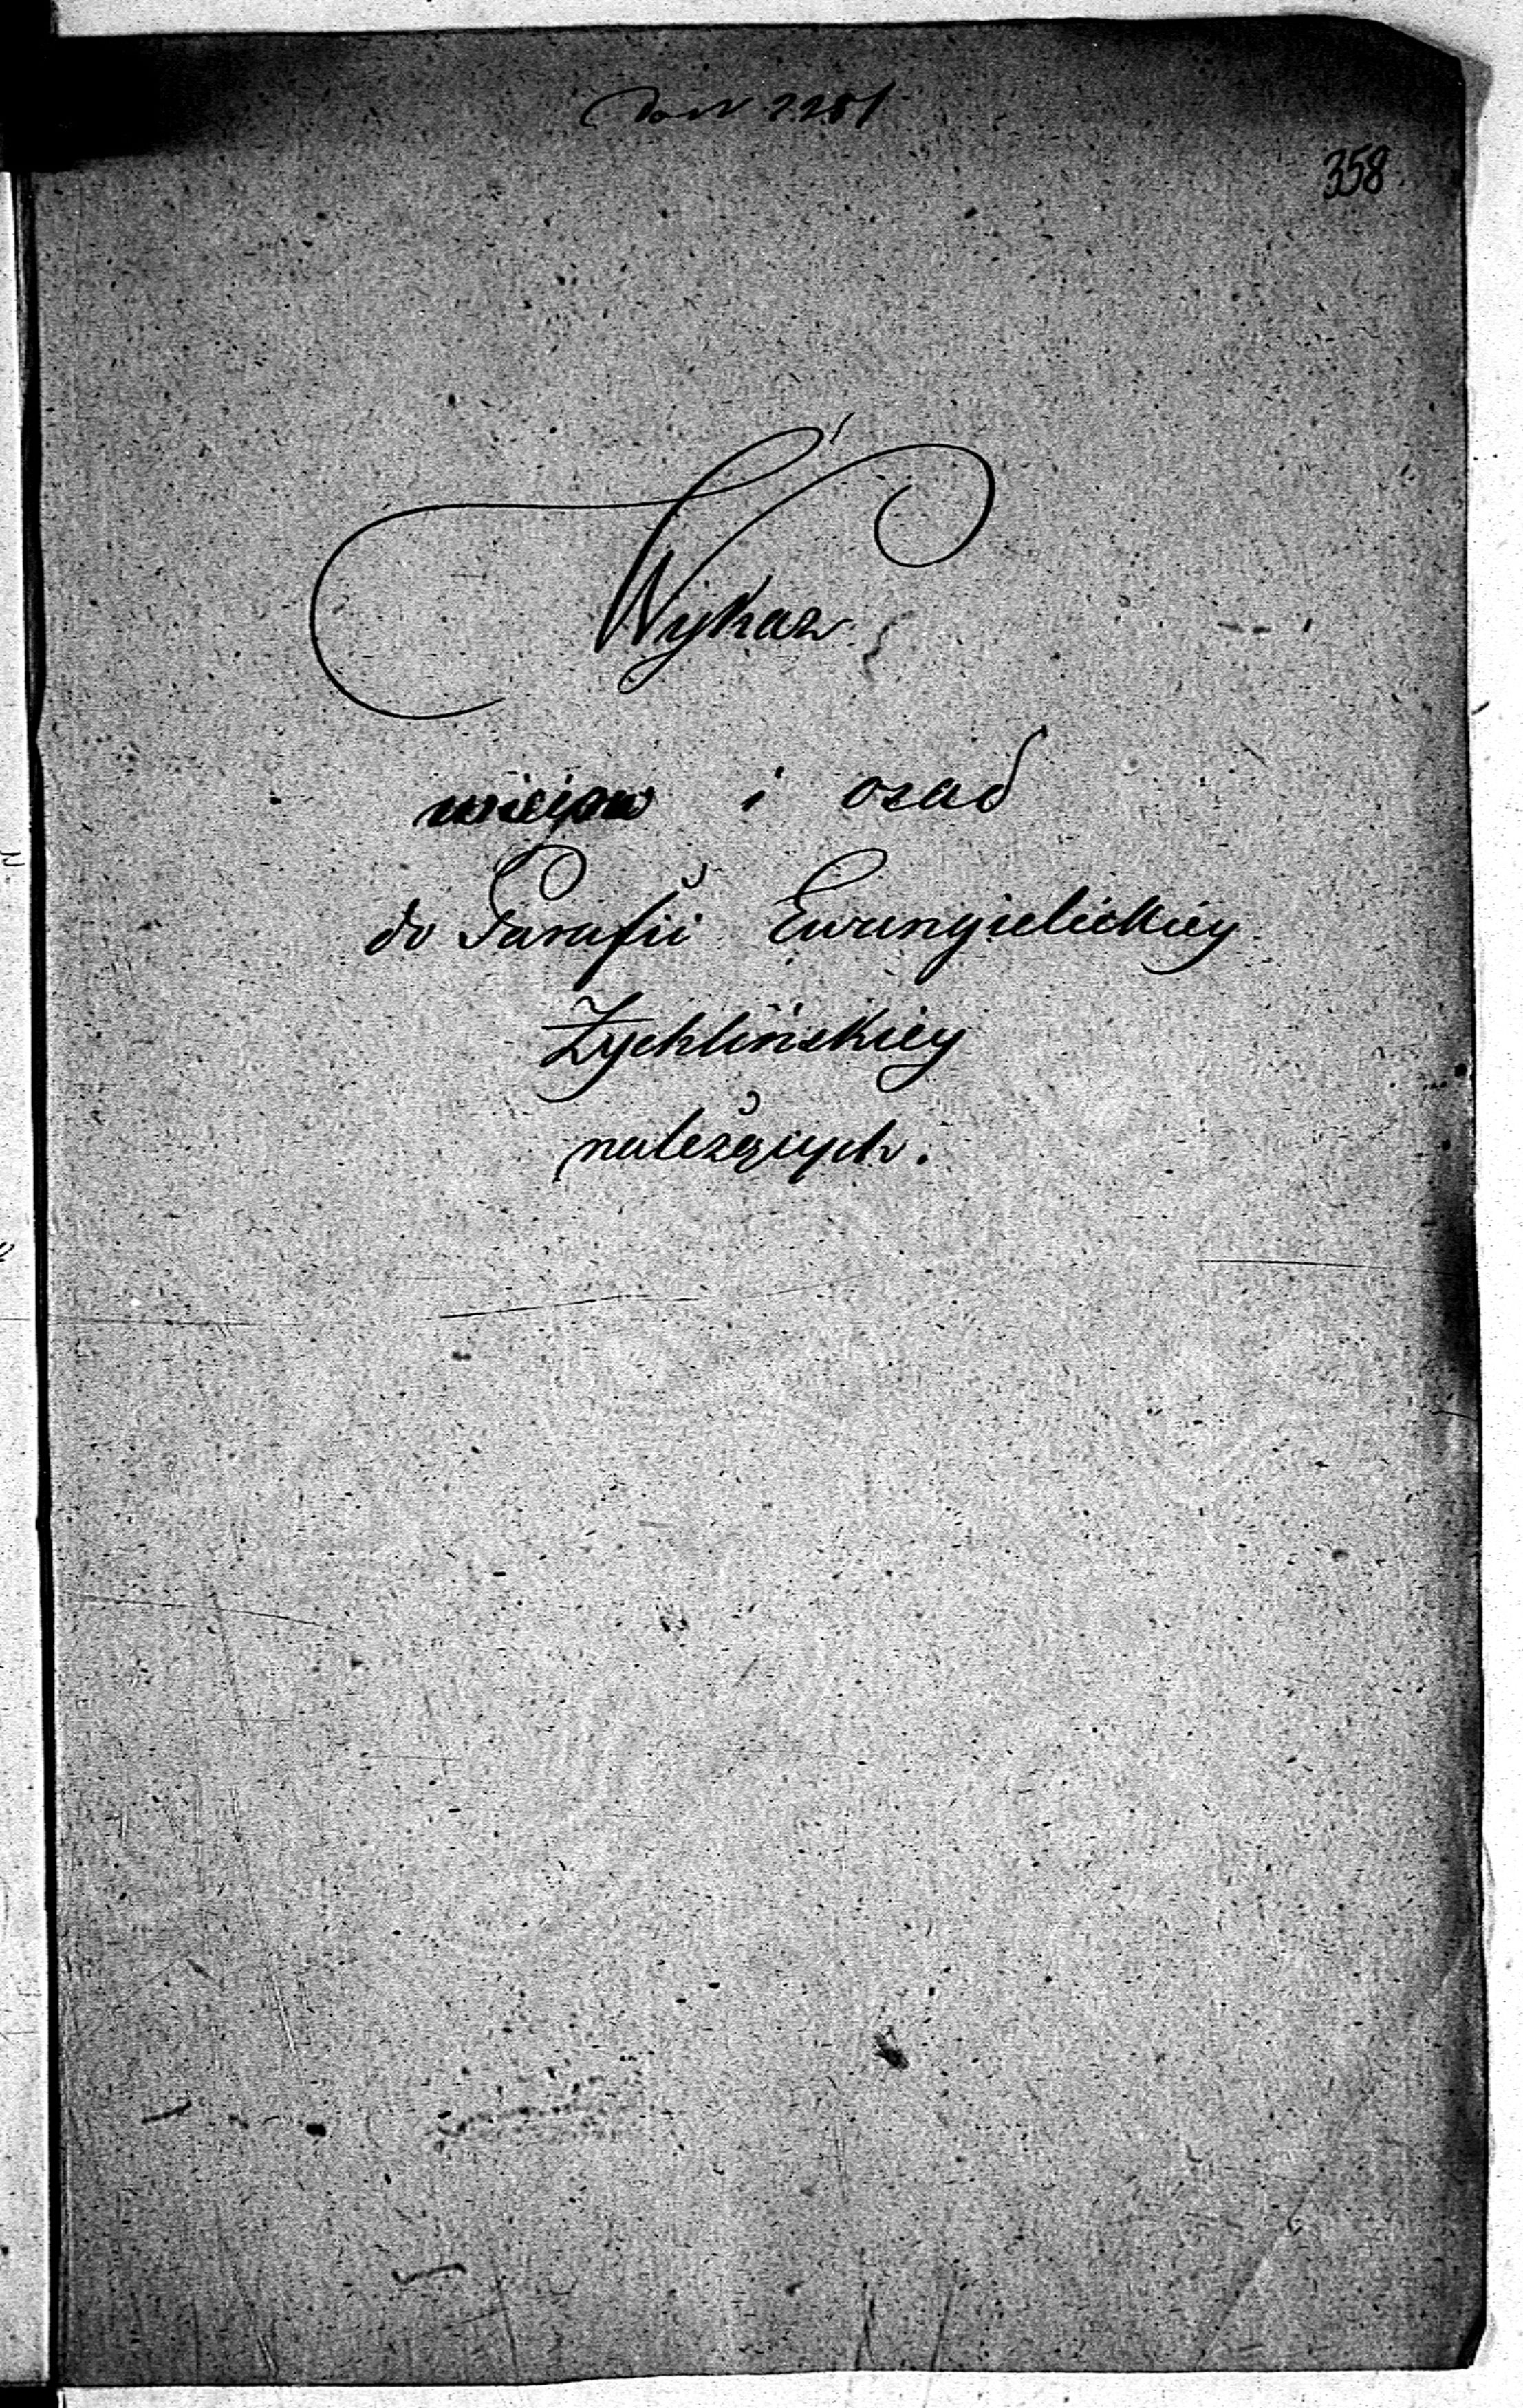 do N 2281
358
Wykaz
i osad
do Parafii Ewangielickiey
Żychlińskiey
należących.